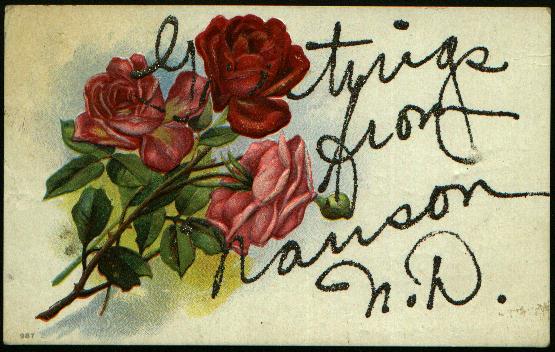 Greetings
from
Nanson
N.D.
987